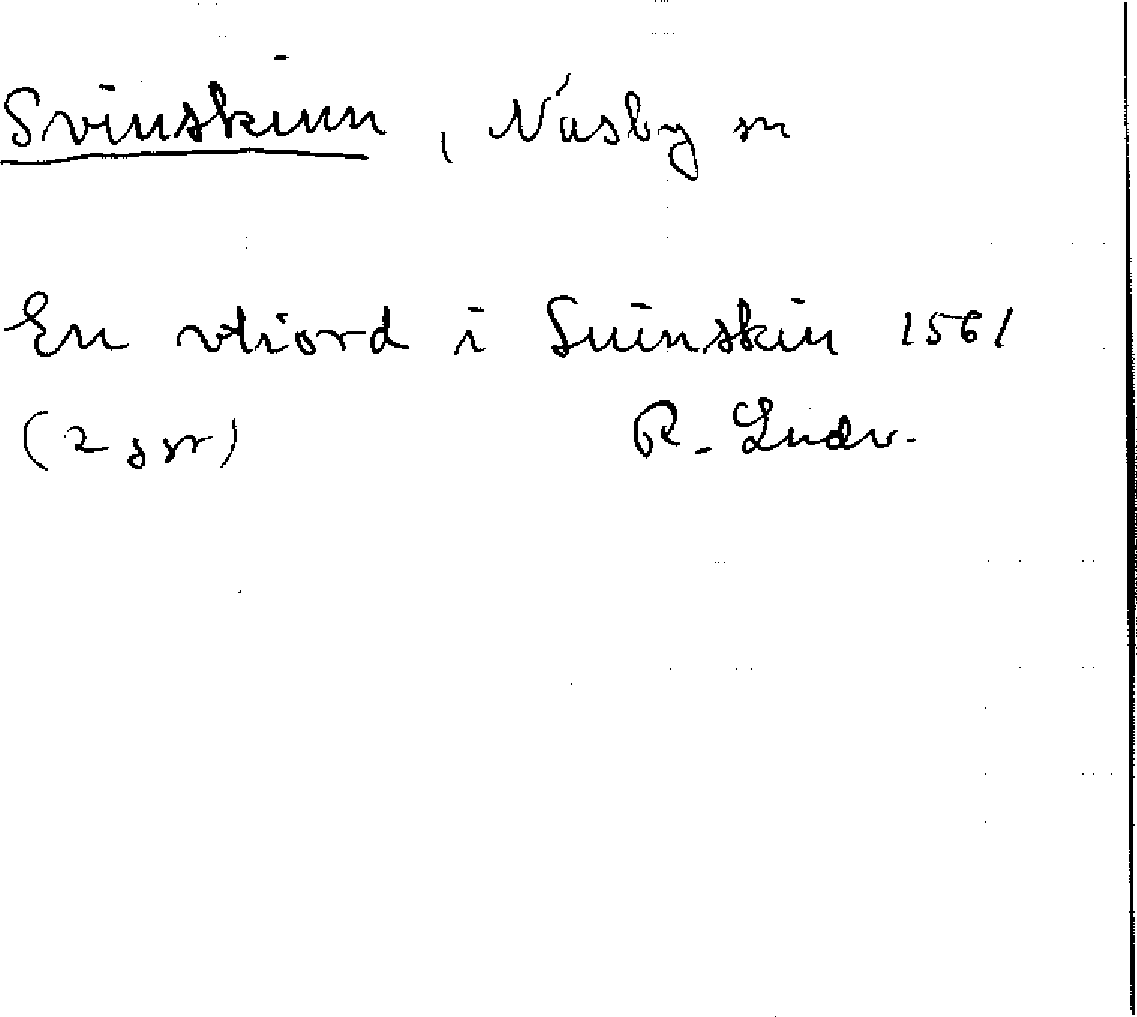 Svinskinn, Näsby sn
En vtiord i Suinskin 1561
(2 ggr) R. Lindv.